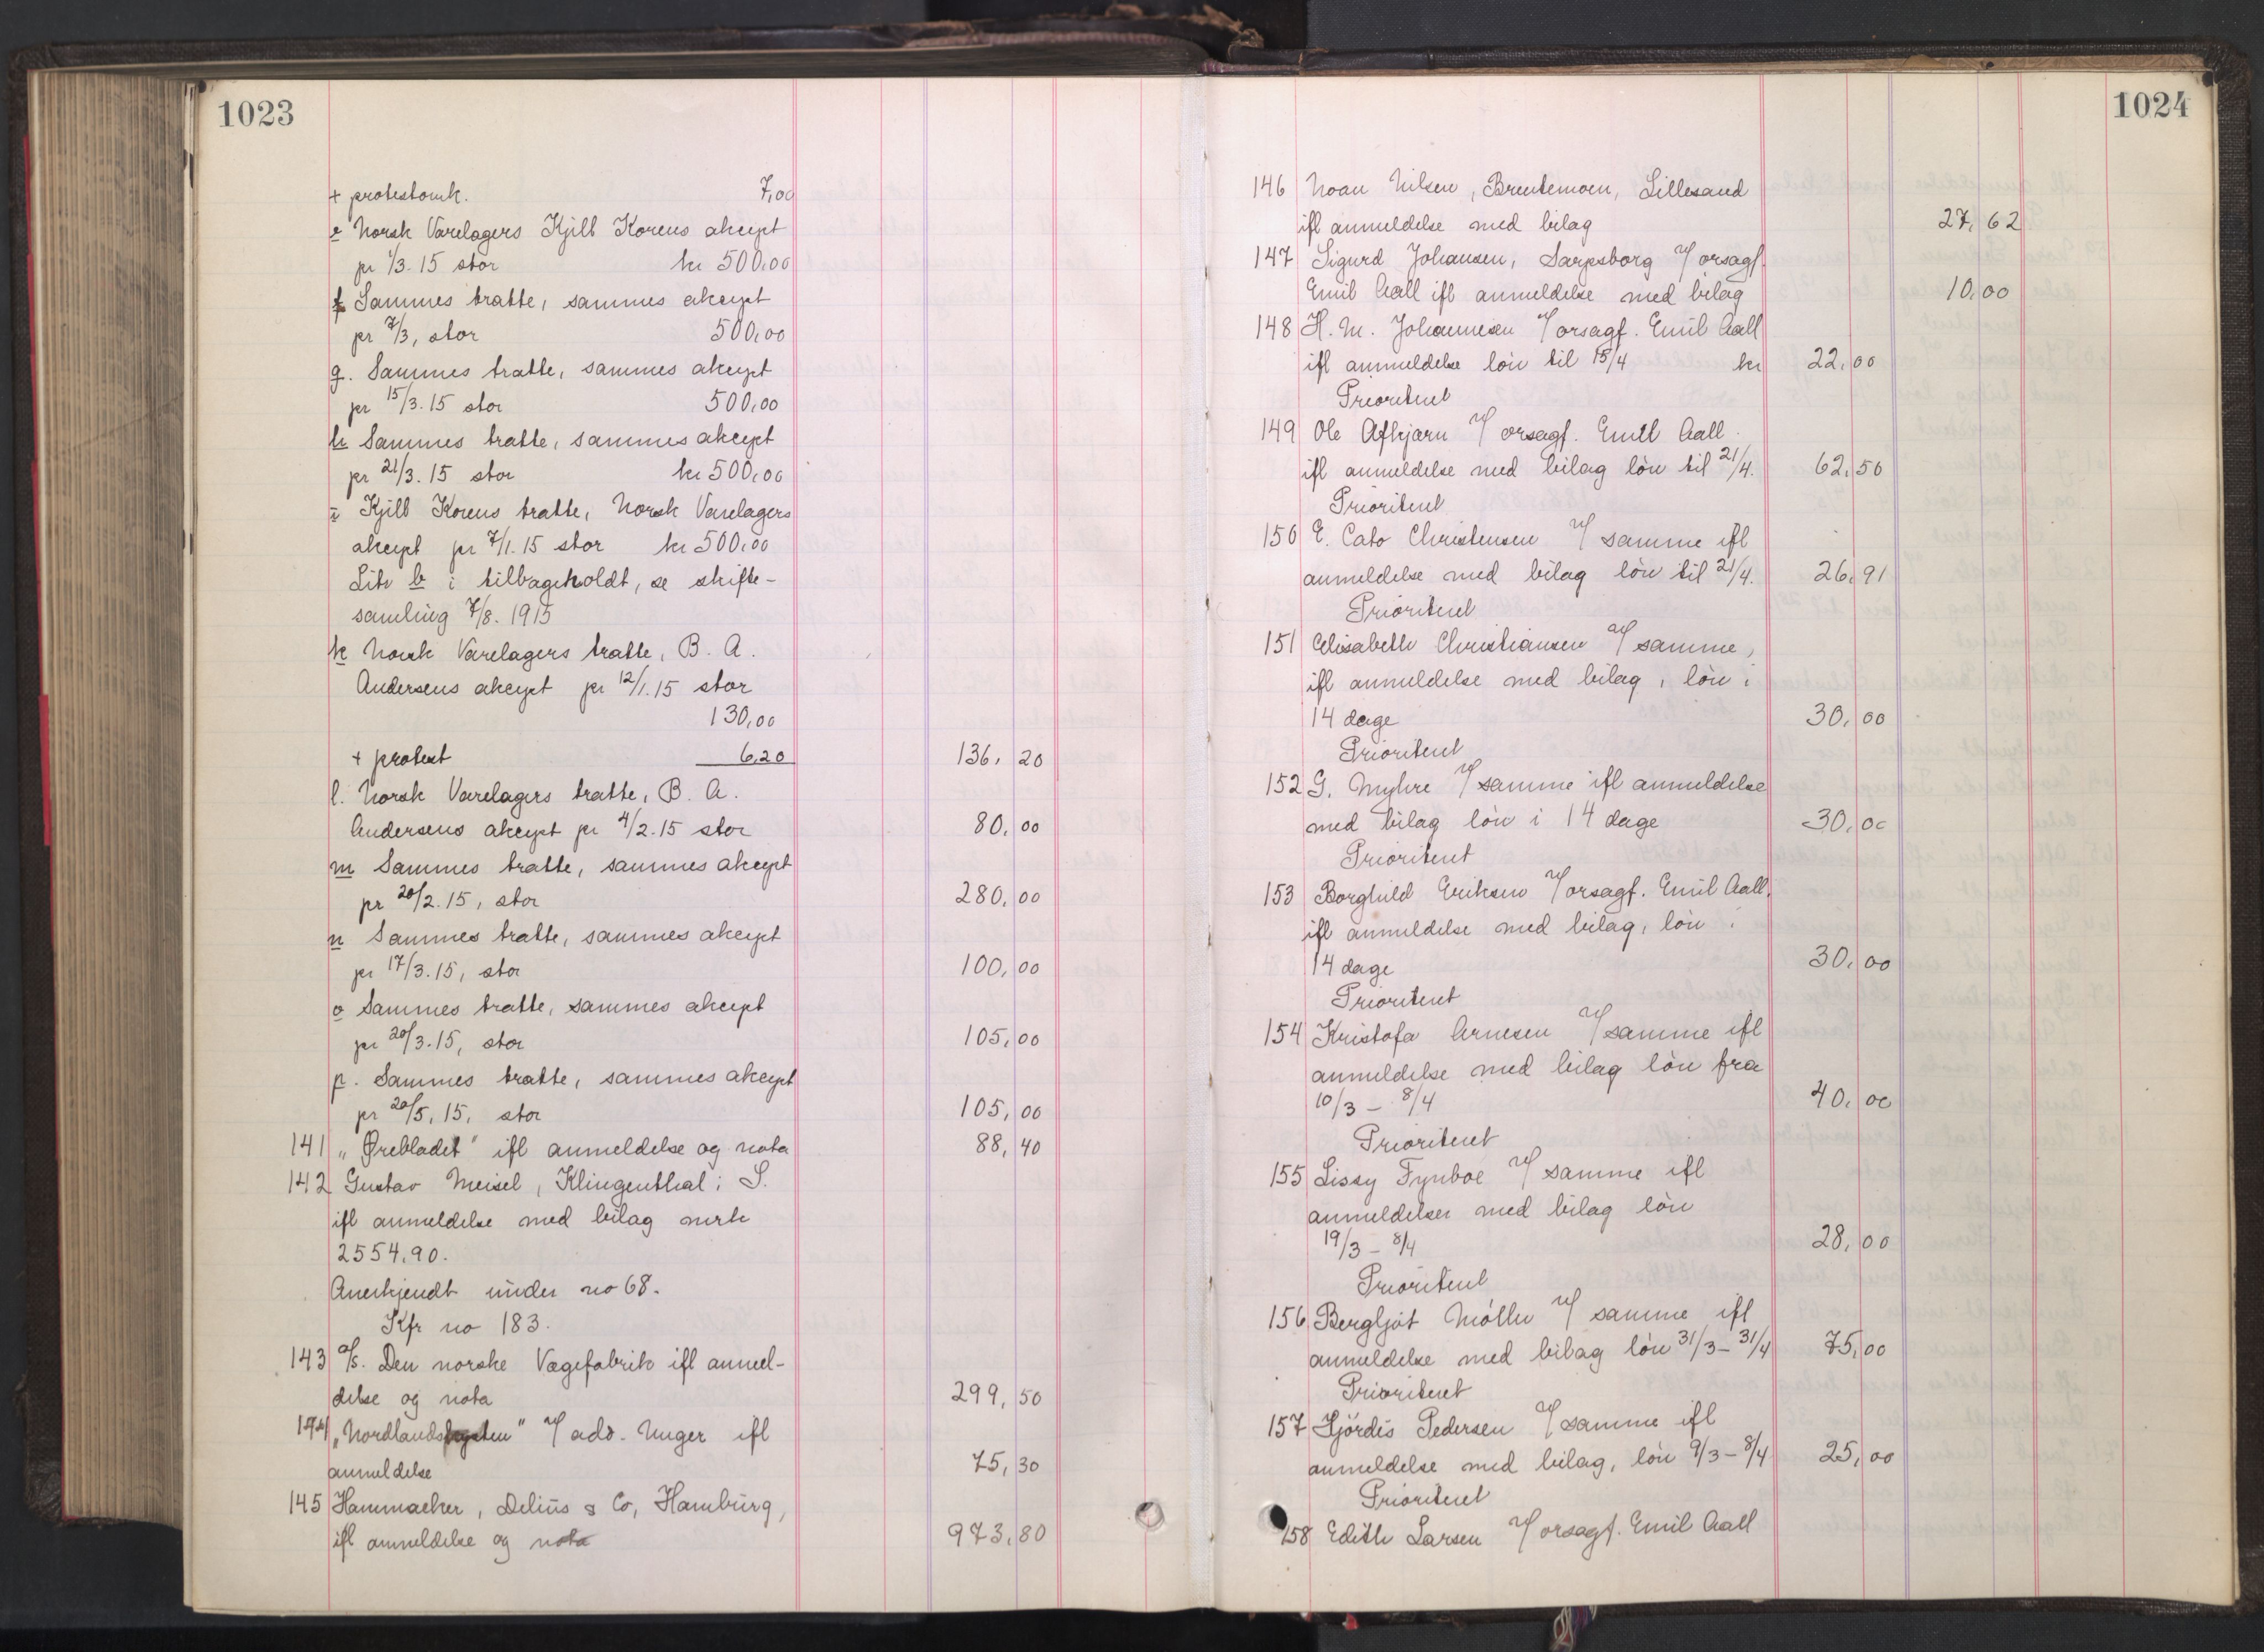 1023
+ protestomk. 7,00
e Norsk Varelagers Kjell Korens akcept
pr 1/3.15 stor kr 500,00
f Sammes tratte, sammes akcept
pr 7/3, stor 500,00
g. Sammes tratte, sammes akcept
pr 15/3.15 stor 500,00
h Sammes tratte, sammes akcept
pr 21/3.15 stor kr 500,00
i Kjell Korens tratte, Norsk Varelagers
akcept pr 7/1.15 stor kr 500,00
Litr b i tilbageholdt, se skifte-
samling 7/8. 1915
k Norsk Varelagers tratte, B. A.
Andersens akcept pr 12/1.15 stor
130,00
+ protest 6,20 136,20
l. Norsk Varelagers tratte, B. A.
Andersens akcept pr 4/2.15 stor 80,00
m Sammes tratte, sammes akcept
pr 20/2.15, stor 280,00
n Sammes tratte, sammes akcept
pr 17/3.15, stor 100,00
o Sammes tratte, sammes akcept
pr 20/3.15, stor 105,00
p. Sammes tratte, sammes akcept
pr 20/5.15, stor 105,00
141 „Ørebladet" ifl anmeldelse og nota 88,40
142 Gustav Meisel, Klingenthal i S.
ifl anmeldelse med bilag mrk
2554,90.
Anerkjendt under no 68.
Kfr no 183.
143 A/S. Den norske Vægefabrik ifl anmel-
delse og nota 299,50
144 „Nordlands " v/ adv. Unger ifl
anmeldelse 75,30
145 Hammacher, Delius & Co, Hamburg,
ifl anmeldelse og nota 973,80
1024
146 Noan Nilsen, Brentemoen, Lillesand
ifl anmeldelse med bilag 27,62
147 Sigurd Johansen, Sarpsborg v/ orsagf.
Emil Aall ifl anmeldelse med bilag 10,00
148 H. M. Johannesen v/ orsagf. Emil Aall
ifl anmeldelse løn til 15/4 kr 22,00
Prioritert
149 Ole Afkjærn v/ orsagf. Emil Aall.
ifl anmeldelse med bilag løn til 21/4. 62,50
Prioritert
150 E. Cato Christensen v/ samme ifl
anmeldelse med bilag løn til 21/4. 26,91
Prioritert
151 Elisabeth Christiansen v/ samme,
ifl anmeldelse med bilag, løn i
14 dage 30,00
Prioritert
152 G. Myhre v/ samme ifl anmeldelse
med bilag løn i 14 dage 30,00
Prioritert
153 Borghild Eriksen v/ orsagf. Emil Aall.
ifl anmeldelse med bilag, løn i
14 dage 30,00
Prioritert
154 Kristofa Arnesen v/ samme ifl
anmeldelse med bilag løn fra
10/3 – 8/4 40,00
Prioritert
155 Lissy Fynboe v/ samme ifl
anmeldelser med bilag løn
19/3 – 8/4 28,00
Prioritert
156 Bergljot Møller v/ samme ifl
anmeldelse med bilag løn 31/3 – 31/4 75,00
Prioritert
157 Hjørdis Pedersen v/ samme ifl
anmeldelse med bilag, løn 9/3 – 8/4 25,00
Prioritert
158 Edith Larsen v/ orsagf. Emil Aall